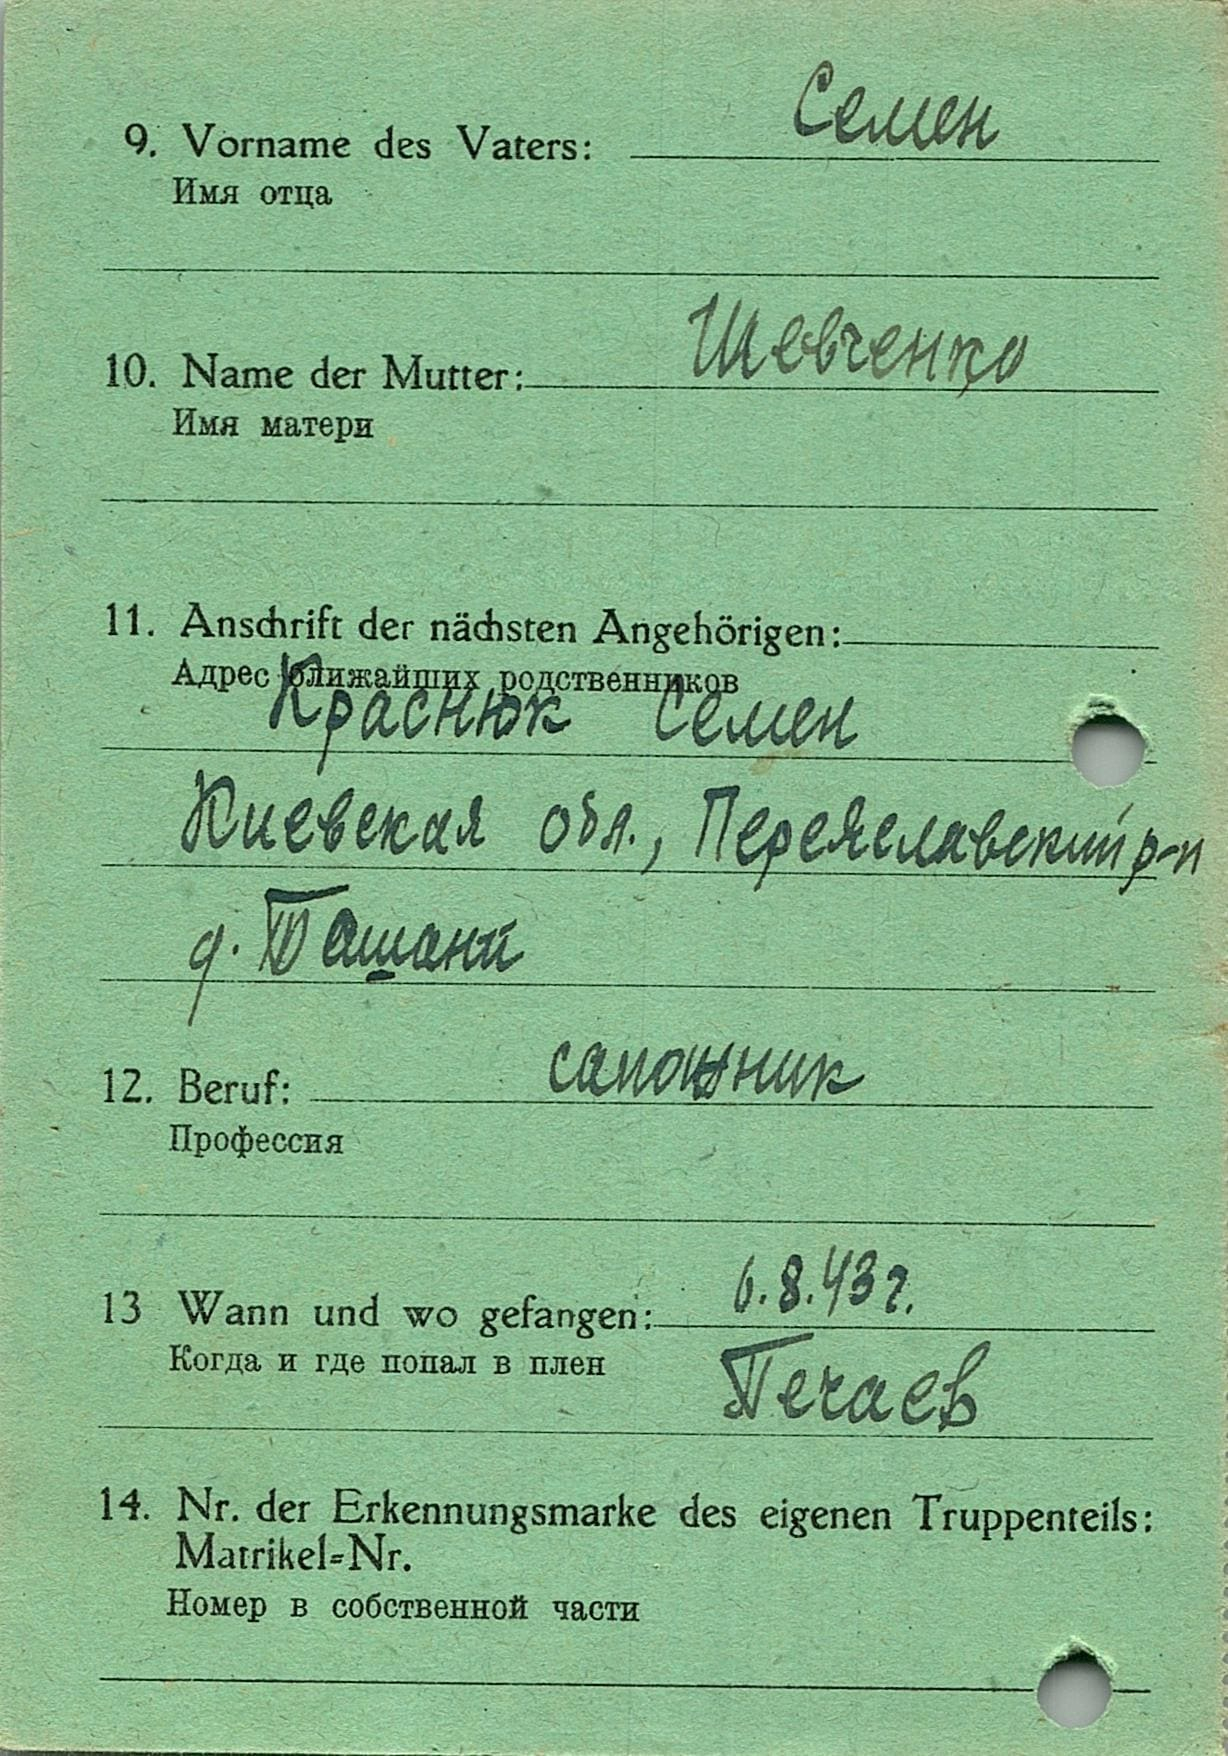 9. Vorname des Vaters: Семен
Имя отца
10. Name der Mutter: Шевченко
Имя матери
11. Anschrift der nächsten Angehörigen:
Адрес ближайших родственников
Краснюк Семен
Киевская обл., Переяславский р-н
д. Ташани
12. Beruf: сапожник
Профессия
13 Wann und wo gefangen: 6.8.43 г.
Когда и где попал в плен
Печаев
14. Nr. der Erkennungsmarke des eigenen Truppenteils:
Matrikel-Nr.
Номер в собственной части